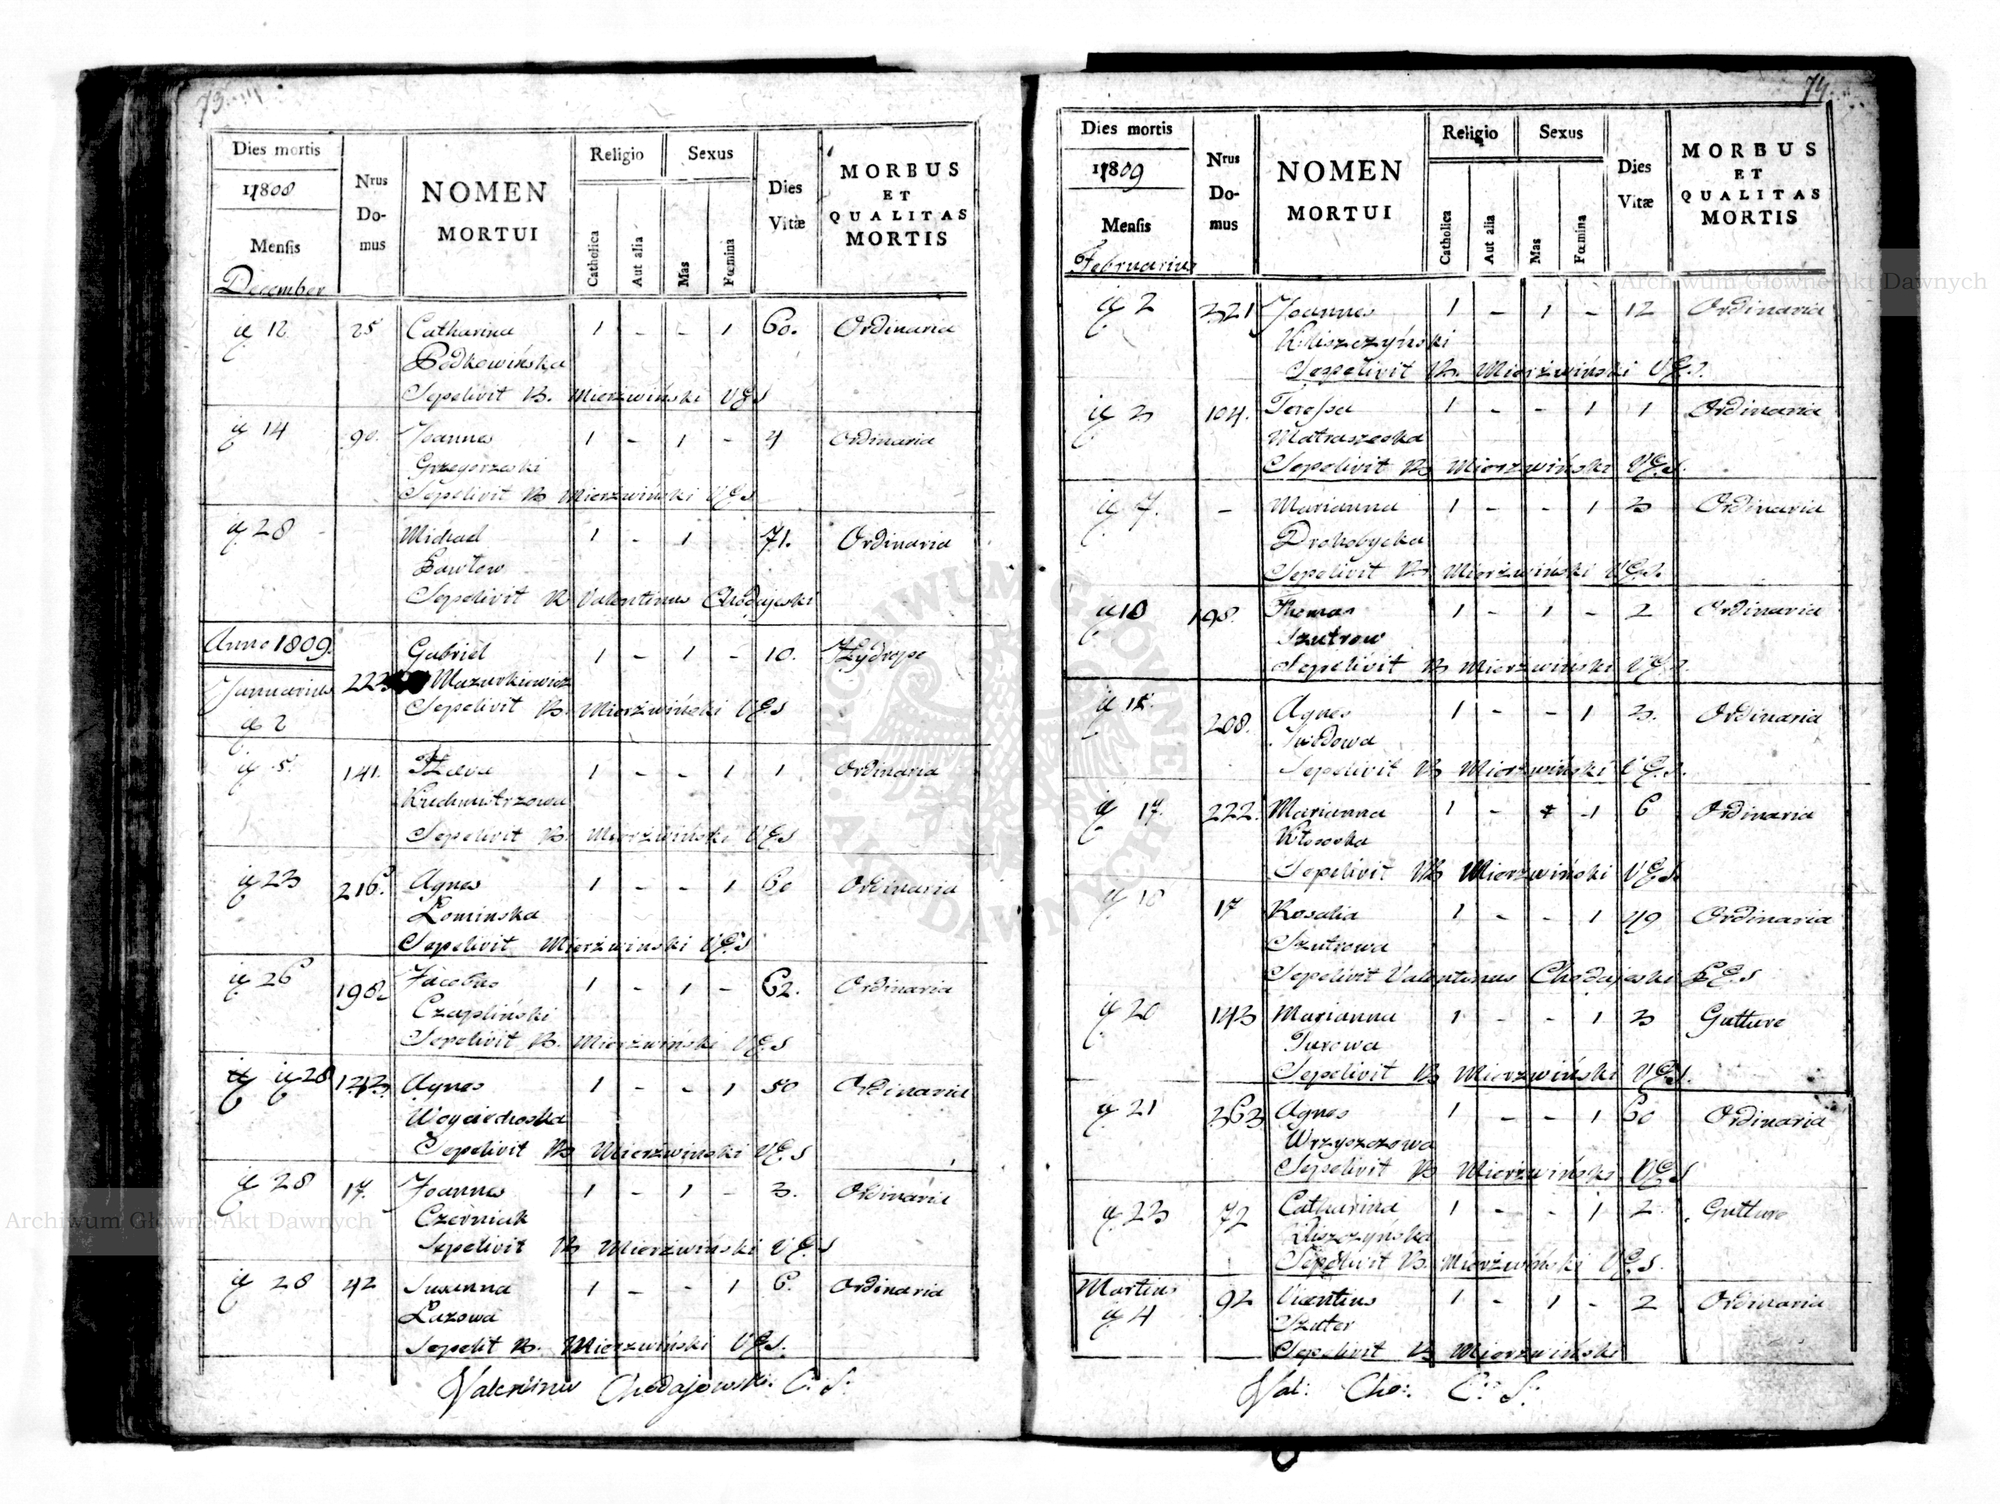 73
Dies mortis
1808
Mensis
December
Nrus Do-mus
NOMEN
MORTUI
Religio
Catholica
Aut alia
Sexus
Mas
Fœmina
Dies
Vitæ
MORBUS
ET
QUALITAS
MORTIS
12 25 Catharina 1 - - 1 60. Ordinaria
Bodkowińska
Sepelivit B. Mierzwiński V E S
14 90. Joannes 1 - 1 - 4 Ordinaria
Grzegorzeski
Sepelivit B Mierzwiński V E S
28 Michael 1 - 1 71. Ordinaria
Pawłow
Sepelivit Valentinus Chodajeski
Anno 1809.
Gabriel 1 - 1 - 10. Hydrope
Januarius 222 Mazurkiewicz
Sepelivit B. Mierzwiński V E S
2
5 141. 1 - - 1 1 Ordinaria
Kuchmistrzowa
Sepelivit B. Mierzwiński V E S
23 216. Agnes 1 - - 1 60 Ordinaria
Łominska
Sepelivit Mierzwinski V E S
26 198. Jacobus 1 - 1 - 62. Ordinaria
Czapliński
Sepelivit B. Mierzwiński V E S
28 123 Agnes 1 - - 1 50 Ordinaria
Woyciechoska
Sepelivit B Mierzwiński V E S
28 17. Joannes 1 - 1 - 3. Ordinaria
Czerniak
Sepelivit B Mierzwiński V E S
28 42 Susanna 1 - - 1 6. Ordinaria
Łazowa
Sepelit B. Mierzwiński V E S.
Valentinus Chodajowski C. S.
74
Dies mortis
1809
Mensis
Februarius
Nrus Do-mus
NOMEN
MORTUI
Religio
Catholica
Aut alia
Sexus
Mas
Fœmina
Dies
Vitæ
MORBUS
ET
QUALITAS
MORTIS
2 321 Joannes 1 - 1 - 12 Ordinaria
Kliszczyński
Sepelivit B. Mierzwiński V E S.
3 104. Teressa 1 - - 1 1 Ordinaria
Matraszeska
Sepelivit B Mierzwiński V E S.
7. - Marianna 1 - - 1 3 Ordinaria
Drohobycka
Sepelivit B. Mierzwiński V E S.
10 198. Thomas 1 - 1 - 2 Ordinaria
Szutrow
Sepelivit B Mierzwiński V E S.
15 208. Agnes 1 - - 1 3. Ordinaria
Dudowa
Sepelivit B Mierzwiński V E S.
17. 222. Marianna 1 - 1 6 Ordinaria
Kłososka
Sepelivit B Mierzwiński V E S.
18 17 Rosalia 1 - - 1 49 Ordinaria
Szutrowa
Sepelivit Valentinus Chodajeski C E S
20 143 Marianna 1 - - 1 3 Gutture
Turowa
Sepelivit B Mierzwiński V E S.
21 363 Agnes 1 - - 1 60 Ordinaria
Wrzyszczowa
Sepelivit B Mierzwiński V E S
23 72 Catharina 1 - - 1 2 Gutture
Kliszczyńska
Sepelivit B. Mierzwiński V E S.
Martius
4 92 Vicentius 1 - 1 - 2 Ordinaria
Szuter
Sepelivit B Mierzwiński
Val: Cho: C: S:
Archiwum Główne Akt Dawnych
Archiwum Główne Akt Dawnych
ARCHIWUM GŁÓWNE AKT DAWNYCH